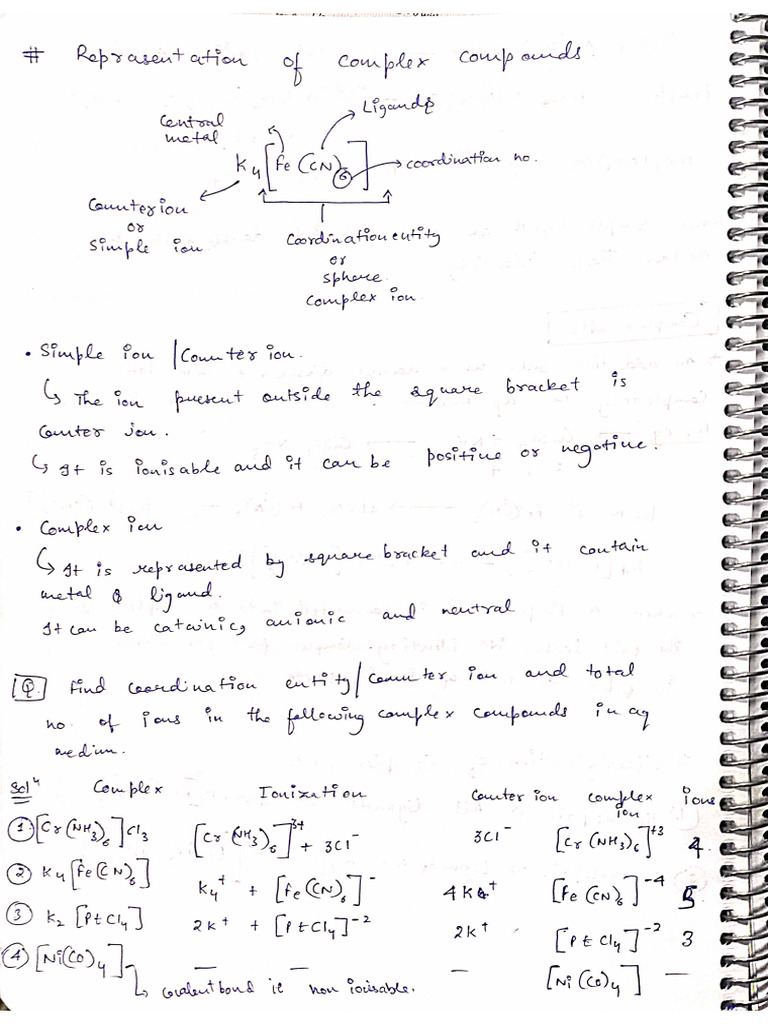 # Reprasentation of complex compounds.
Central metal
Ligands
K4[Fe(CN)6]
coordination no.
Counterion
or
Simple ion
Coordination entity
or
sphere
complex ion
• Simple ion / Counter ion.
↳ The ion present outside the square bracket is
Counter ion.
↳ It is ionisable and it can be positive or negative.
• Complex ion
↳ It is reprasented by square bracket and it contain
metal & ligand.
It can be catainic, anionic and neutral
Q. Find coordination entity/counter ion and total
no. of ions in the following complex compounds in aq
medium.
Solⁿ Complex Ionization Counter ion complex ion ions
① [Cr(NH3)6]Cl3 [Cr(NH3)6]3+ + 3Cl- 3Cl- [Cr(NH3)6]+3 4
② K4[Fe(CN)6] K4+ + [Fe(CN)6]- 4K+ [Fe(CN)6]-4 5
③ K2[PtCl4] 2K+ + [PtCl4]-2 2K+ [PtCl4]-2 3
④ [Ni(CO)4] — — — [Ni(CO)4] —
↳ Covalent bond ie non ionisable.